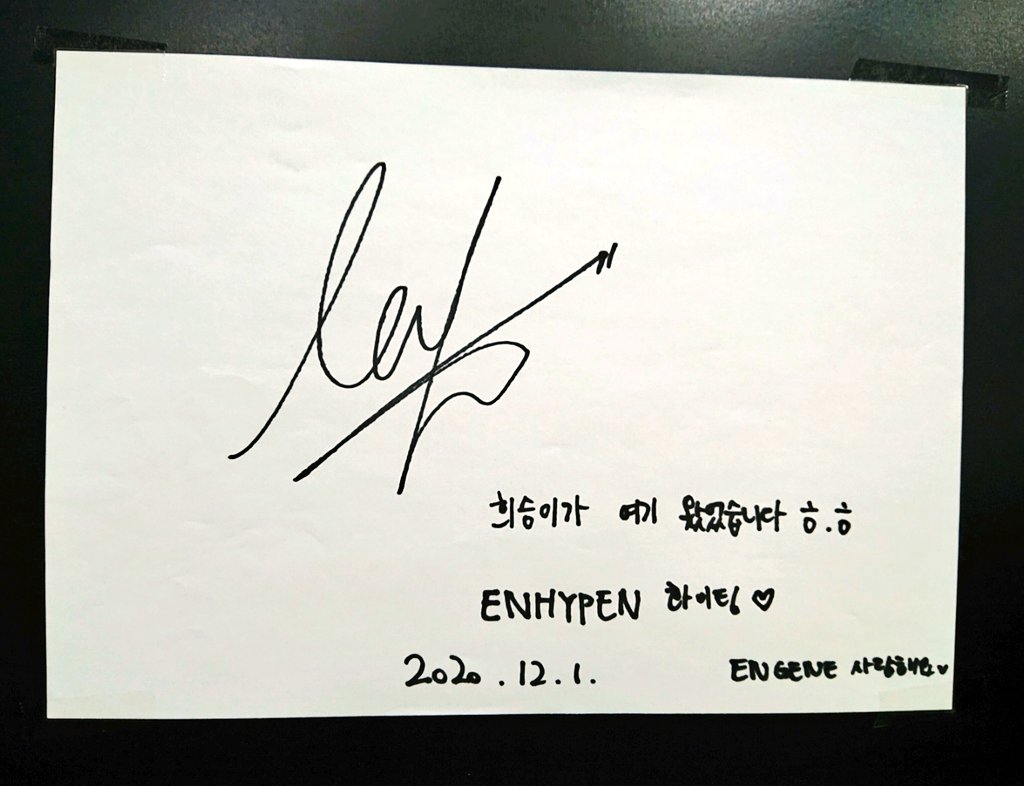 희승이가 여기 왔었습니다 ㅎ.ㅎ
ENHYPEN 화이팅 ♡
2020.12.1.
ENGENE 사랑해요♡